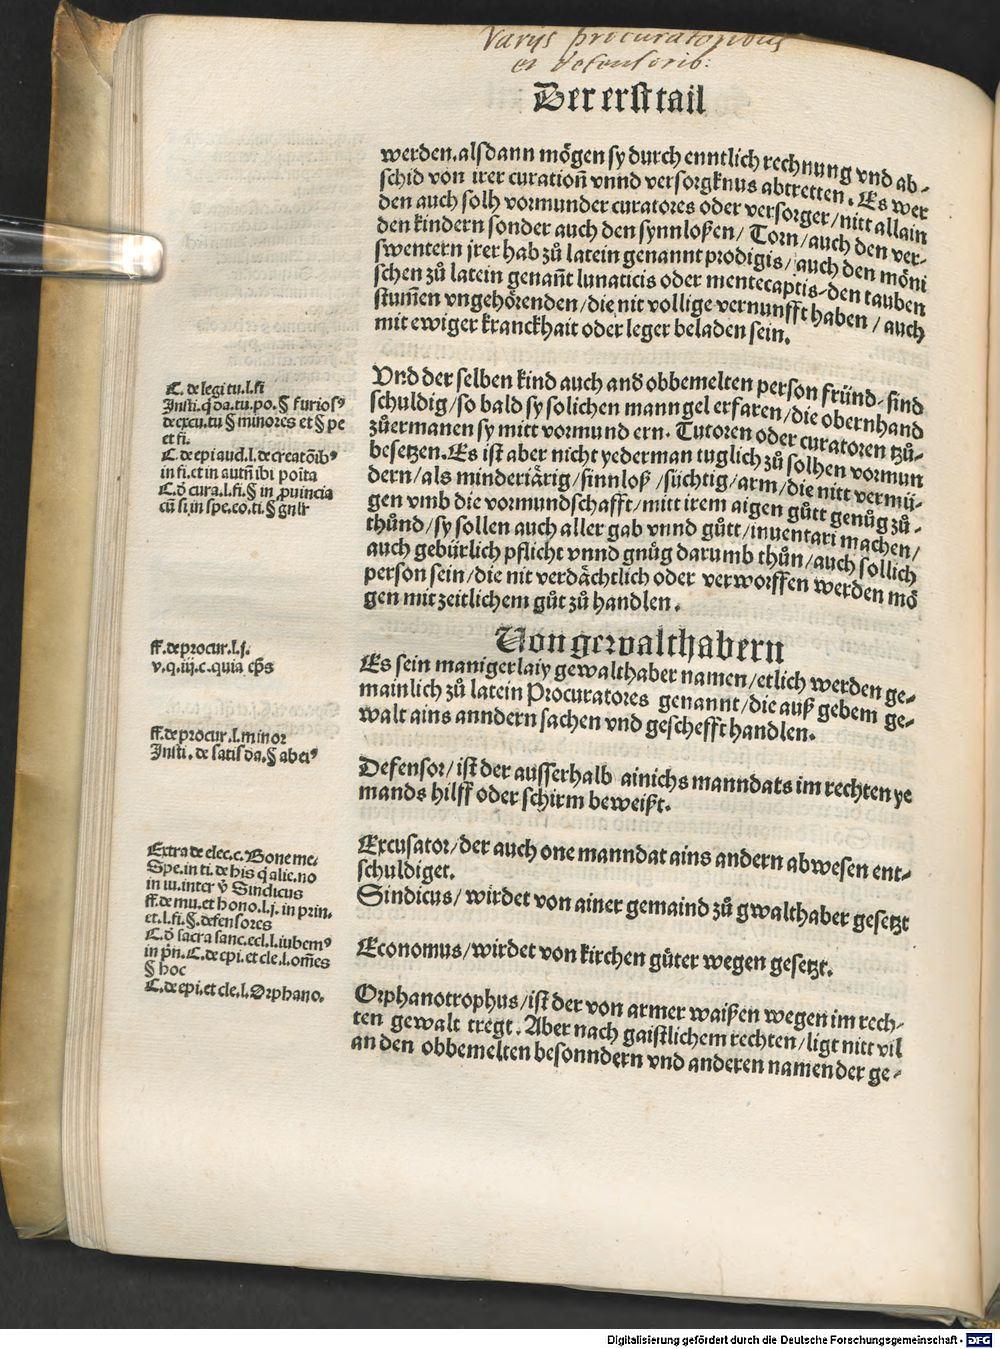 Varijs procuratoribus
et defensorib:
Der erst tail
werden. alsdann mögen sy durch enntlich rechnung vnd ab-
schid von irer curation̄ vnnd versorgknus abtretten. Es wer
den auch solh vormunder curatores oder versorger / nitt allain
den kindern sonder auch den synnloßen / Torn / auch den ver-
swentern jrer hab zů latein genannt prodigis / auch den möni
schen zů latein genan̄t lunaticis oder mentecaptis- den tauben
stum̄en vngehörenden / die nit vollige vernunfft haben / auch
mit ewiger kranckhait oder leger beladen sein.
C. de legi tu. l. fi
Insti. q̄ da. tu. po. § furiosꝰ
de excu. tu § minores et § pe
et fi.
C. de epi aud. l. de creatōibꝰ
in fi. et in autn̄ ibi poīta
C. d̄ cura. l. fi. § in ꝓuincia
cū si. in spe. eo. ti. § gn̄lr
Vnd der selben kind auch and obbemelten person fründ- sind
schuldig / so bald sy solichen manngel erfaren / die obernhand
zůermanen sy mitt vormund ern. Tutoren oder curatoren tzů-
besetzen. Es ist aber nicht yederman tuglich zů solhen vormun
dern / als minderiärig / sinnloß / süchtig / arm / die nitt vermü-
gen vmb die vormundschafft / mitt irem aigen gůtt genůg zů-
thůnd / sy sollen auch aller gab vnnd gůtt / inuentari machen /
auch gebürlich pflicht vnnd gnůg darumb thůn / auch sollich
person sein / die nit verdächtlich oder verworffen werden mö
gen mit zeitlichem gůt zů handlen.
Von gewalthabern
ff. de procur. l. j.
v. q. iij. c. quia ep̄s
Es sein maniger laiy gewalthaber namen / etlich werden ge-
mainlich zů latein Procuratores genannt / die auß gebem ge-
walt ains anndern sachen vnd geschefft handlen.
ff. de procur. l. minor
Insti. de satis da. § abeiꝰ
Defensor / ist der ausserhalb ainichs manndats im rechten ye
mands hilff oder schirm beweißt.
Extra de elec. c. Bone me.
Spe. in ti. de his q̄ alie. no
in iu. inter ꝟ Sindicus
ff. de mu. et hono. l. j. in prin.
et. l. fi. §. defensores
C. d̄ sacra sanc. ecl. l. iubemꝰ
in p̄n. C. de epi. et cle. l. om̄es
§ hoc
C. de epi. et cle. l. Orphano.
Excusator / der auch one manndat ains andern abwesen ent-
schuldiget.
Sindicus / wirdet von ainer gemaind zů gwalthaber gesetzt
Economus / wirdet von kirchen güter wegen gesetzt.
Orphanotrophus / ist der von armer waißen wegen im rech-
ten gewalt tregt. Aber nach gaistlichem rechten / ligt nitt vil
an den obbemelten besonndern vnd anderen namen der ge-
Digitalisierung gefördert durch die Deutsche Forschungsgemeinschaft - DFG